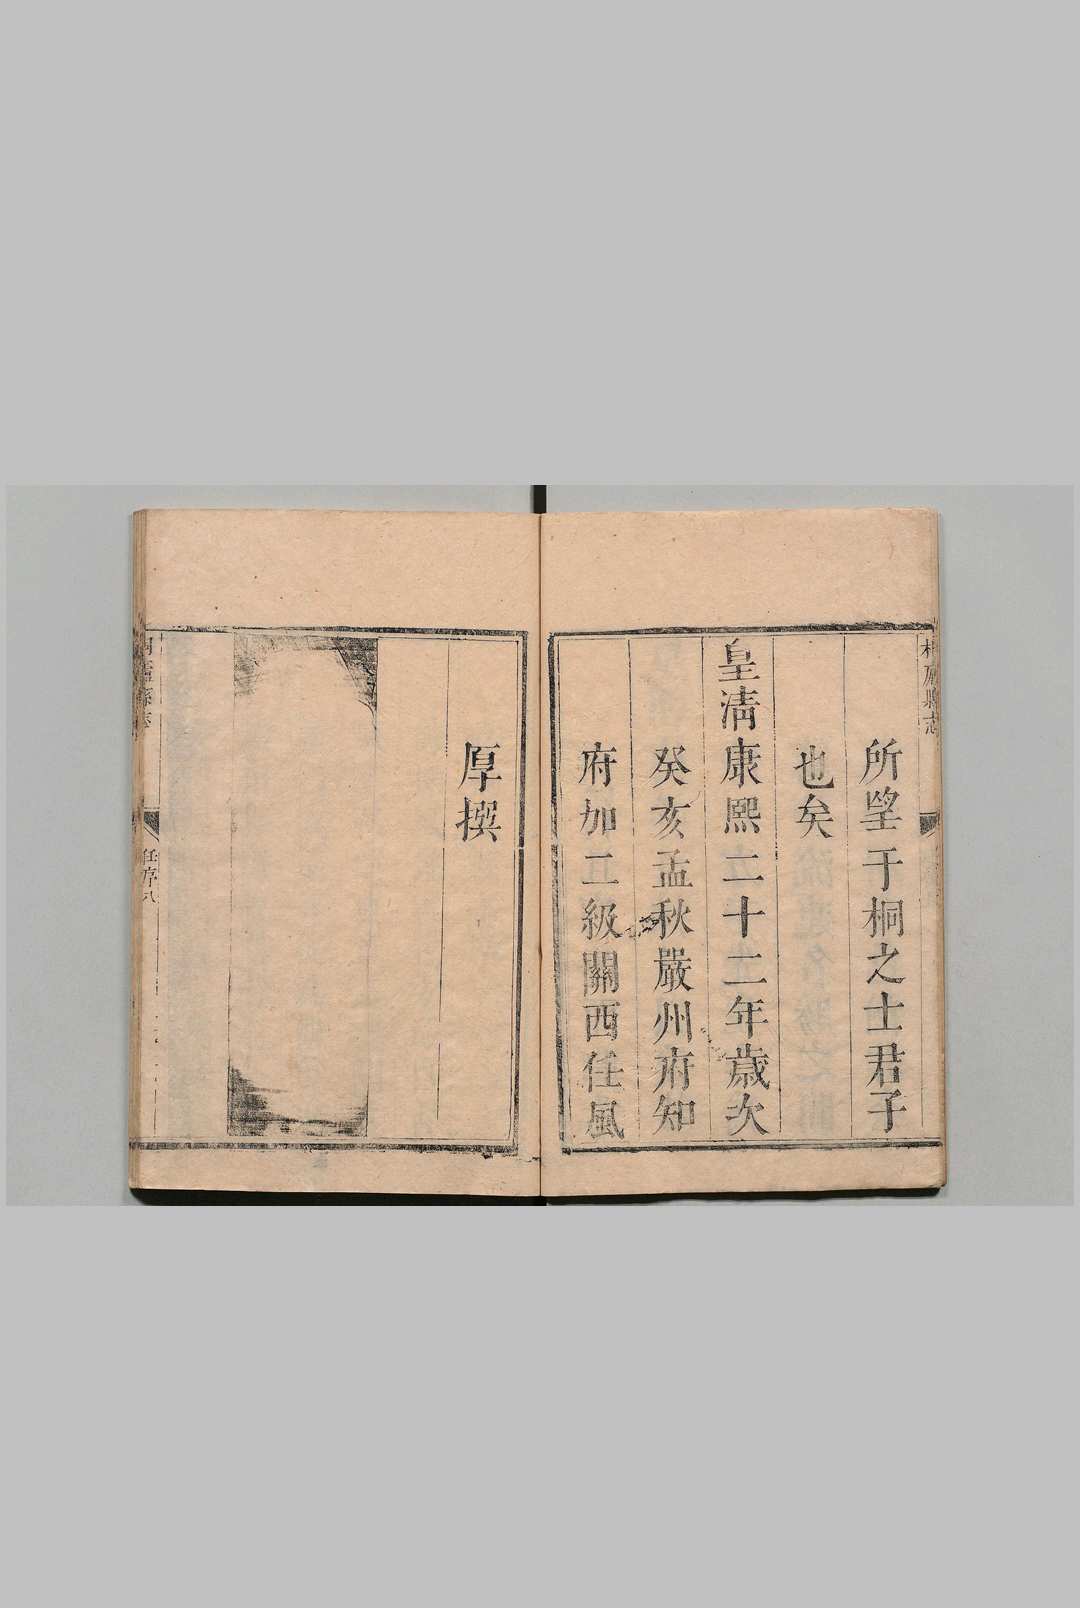 所望于桐之士君子
也矣
皇淸康熙二十二年歲次
癸亥孟秋嚴州府知
府加二級關西任風
厚撰
桐廬縣志
任序八